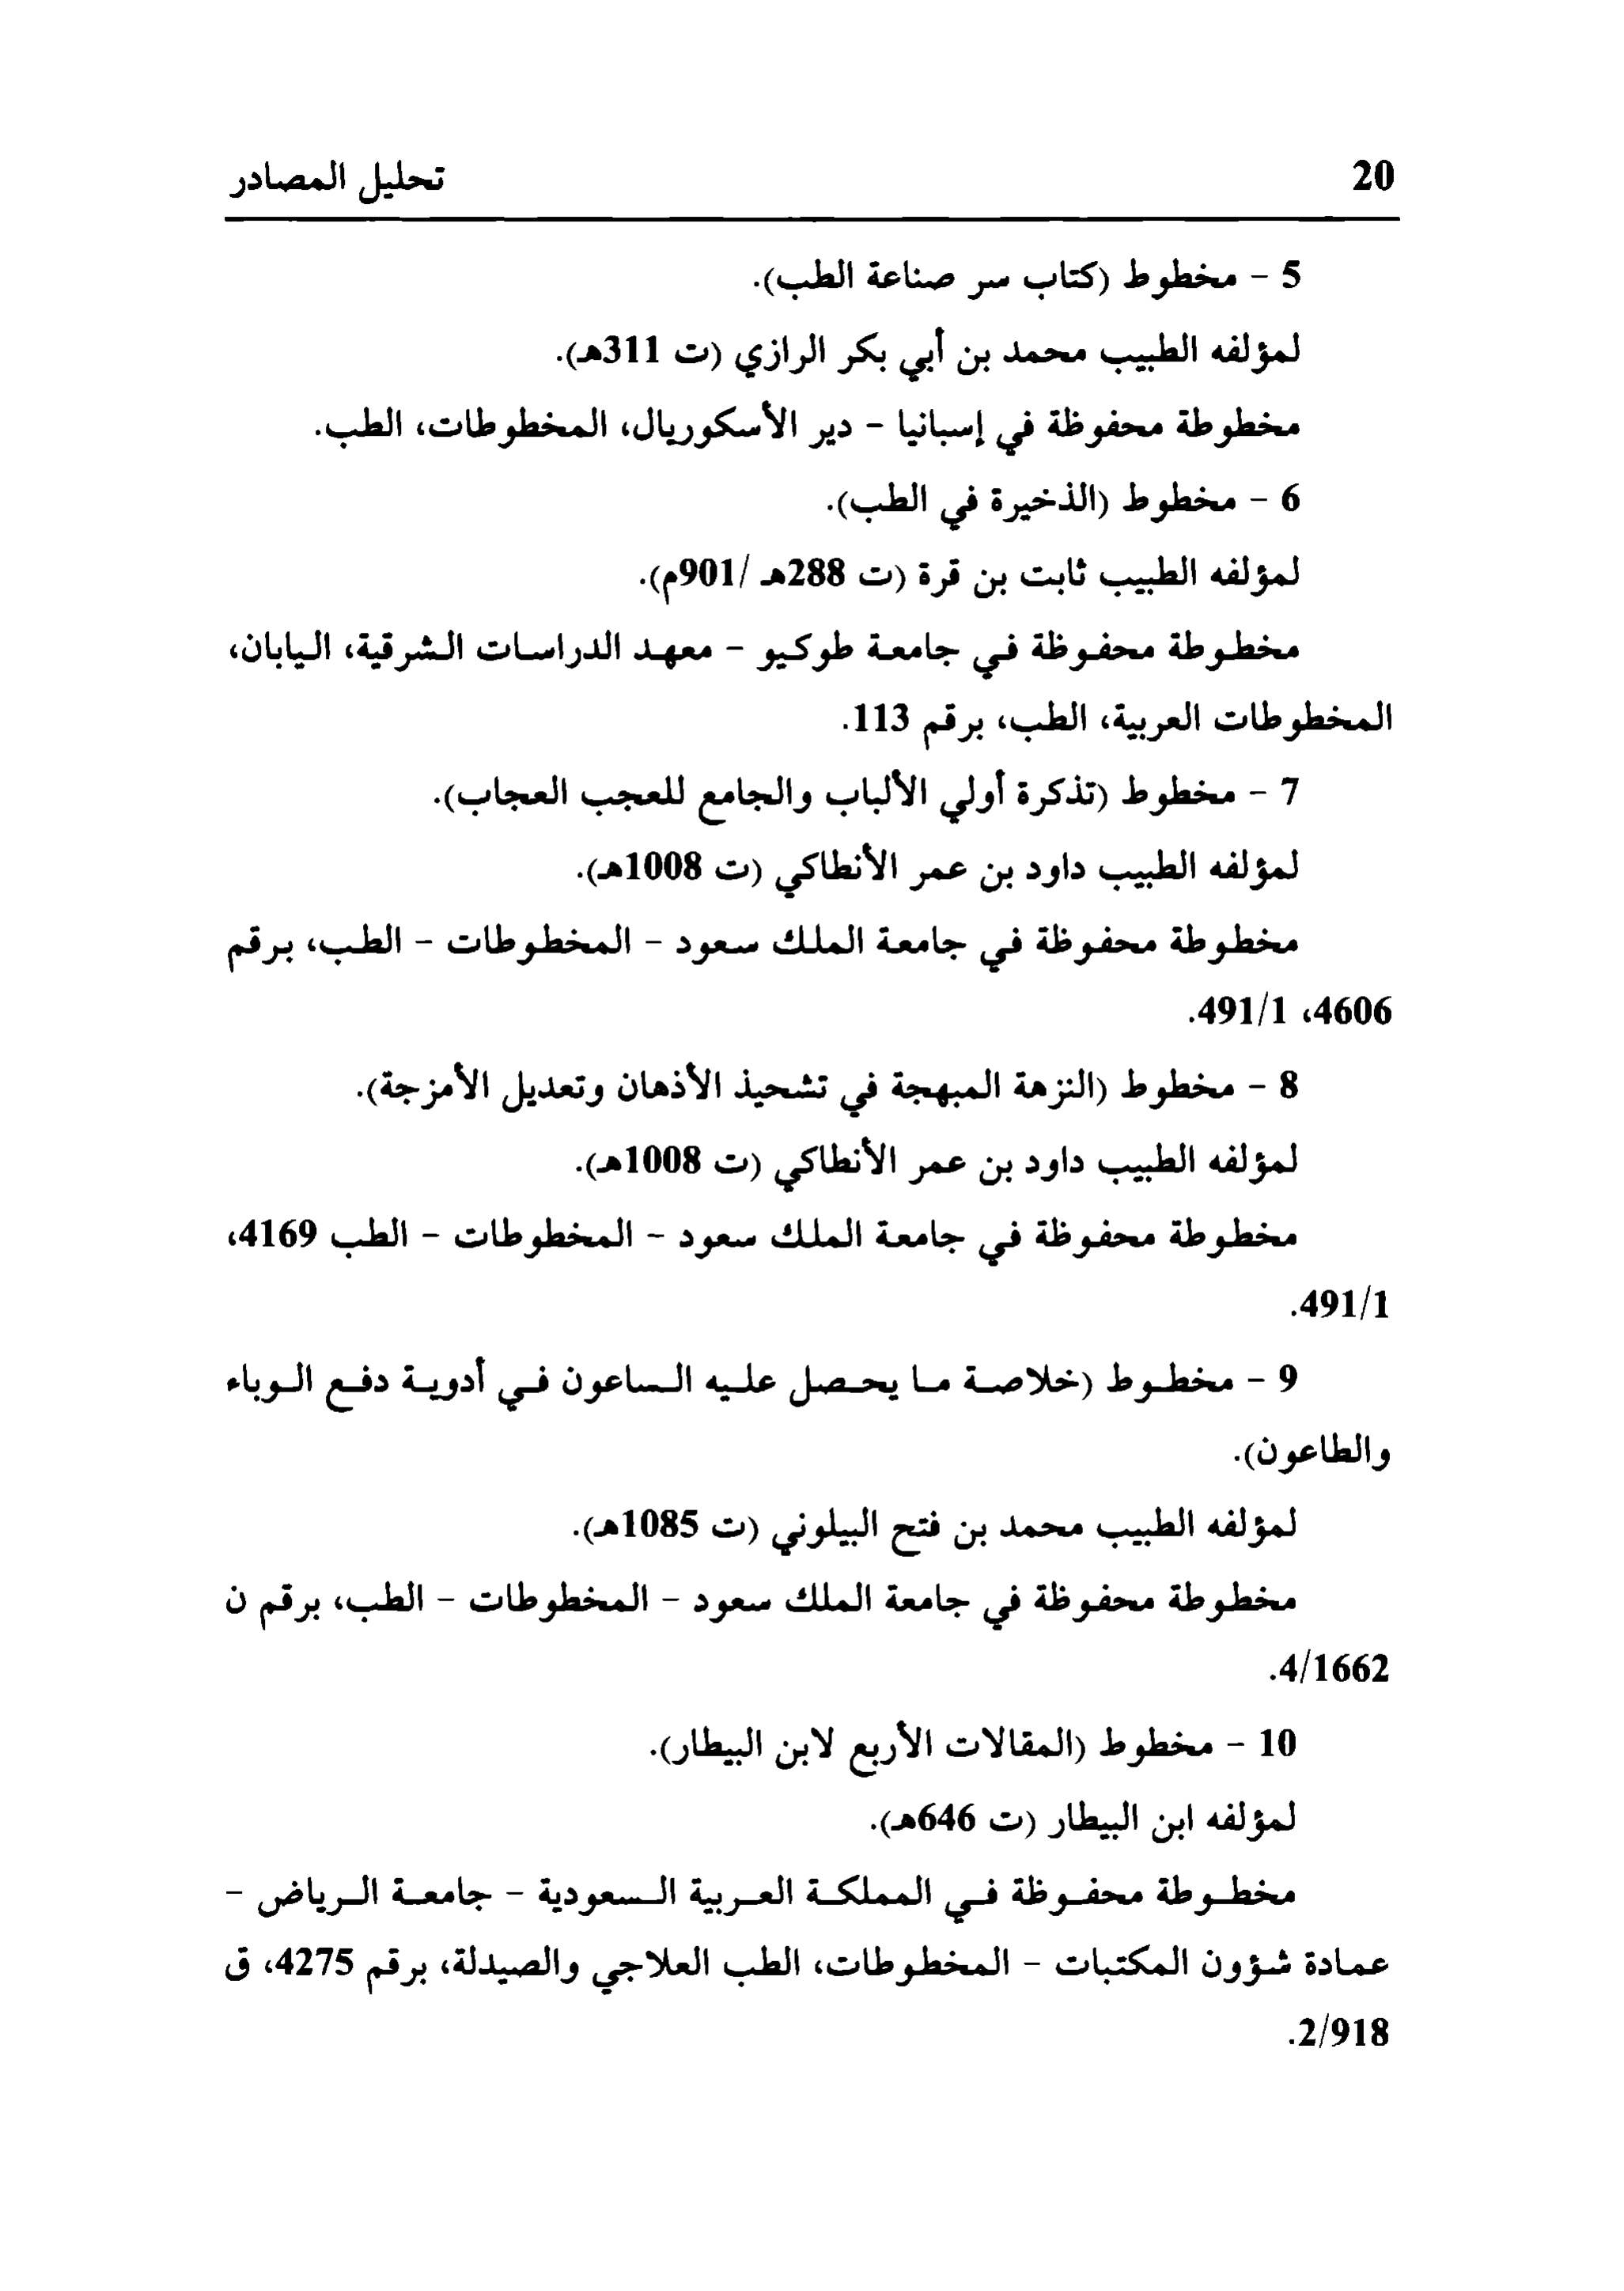 20
تحليل المصادر
5 - مخطوط (كتاب سر صناعة الطب).
لمؤلفه الطبيب محمد بن أبي بكر الرازي (ت 311هـ).
مخطوطة محفوظة في إسبانيا - دير الأسكوريال، المخطوطات، الطب.
6 - مخطوط (الذخيرة في الطب).
لمؤلفه الطبيب ثابت بن قرة (ت 288هـ /901م).
مخطوطة محفوظة في جامعة طوكيو - معهد الدراسات الشرقية، اليابان،
المخطوطات العربية، الطب، برقم 113.
7 - مخطوط (تذكرة أولي الألباب والجامع للعجب العجاب).
لمؤلفه الطبيب داود بن عمر الأنطاكي (ت 1008هـ).
مخطوطة محفوظة في جامعة الملك سعود - المخطوطات - الطب، برقم
4606، 491/1.
8 - مخطوط (النزهة المبهجة في تشحيذ الأذهان وتعديل الأمزجة).
لمؤلفه الطبيب داود بن عمر الأنطاكي (ت 1008هـ).
مخطوطة محفوظة في جامعة الملك سعود - المخطوطات - الطب 4169،
491/1.
9 - مخطوط (خلاصة ما يحصل عليه الساعون في أدوية دفع الوباء
والطاعون).
لمؤلفه الطبيب محمد بن فتح البيلوني (ت 1085هـ).
مخطوطة محفوظة في جامعة الملك سعود - المخطوطات - الطب، برقم ن
4/1662.
10 - مخطوط (المقالات الأربع لابن البيطار).
لمؤلفه ابن البيطار (ت 646هـ).
مخطوطة محفوظة في المملكة العربية السعودية - جامعة الرياض -
عمادة شؤون المكتبات - المخطوطات، الطب العلاجي والصيدلة، برقم 4275، ق
2/918.